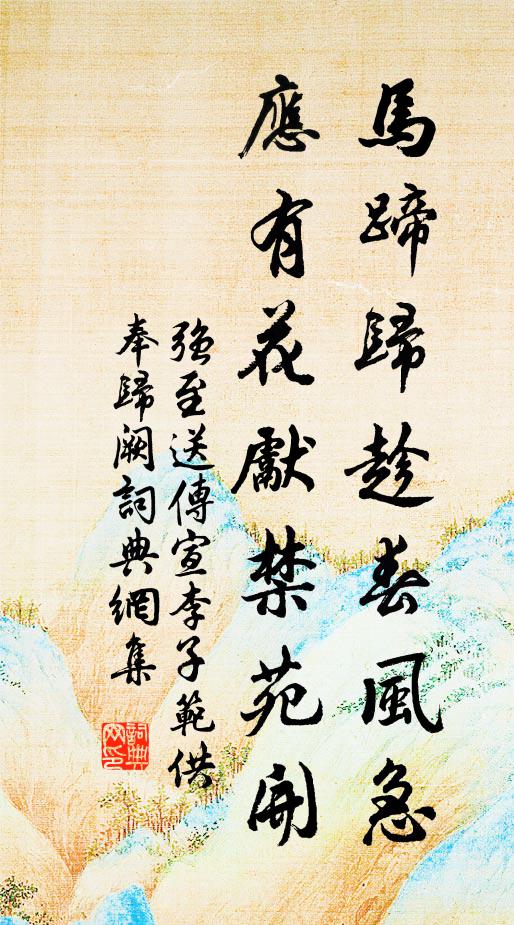 馬蹄歸趁春風急
應有花獻禁苑開
強至送傳宣李子範供
奉歸闕詞典網集
詞典
网印